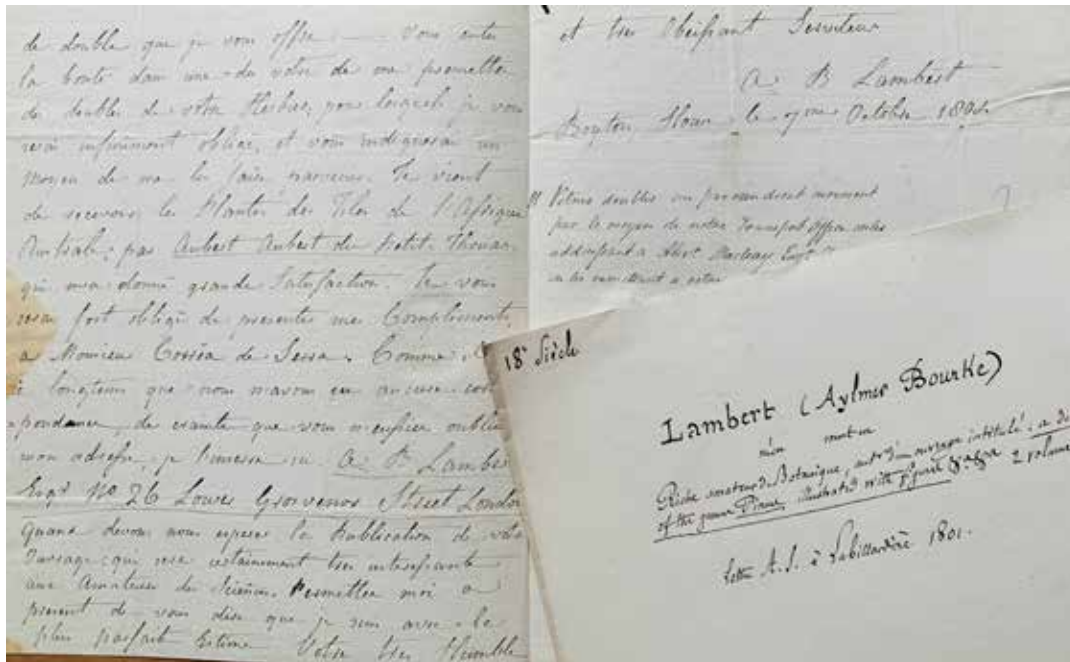 de double que je vous offre — Vous avez
la bonté dans une du votre de me promettre
de doubles de votre Herbier, pour lesquels je vous
serai infiniment obligé, et vous indiquerai un
moyen de me les faire parvenir. Je vient
de recevoir les Plantes des Iles de l'Afrique
Australe; par Aubert Aubert du Petit Thouars
qui ma donné grande Satisfaction. Je vous
serai fort obligé de presenter mes Compliments
a Monsieur Corrêa de Serra. Comme il
longtems que nous navons eu aucune corres
pondance, de crainte que vous n'eussiez oublié
mon adresse, je l'
A B Lambert
Esqr No 26 Lower Grosvenor Street London
Quand devons nous esperer la Publication de votre
Ouvrage qui sera certainement tres interessante
aux Amateurs de Science. Permettez moi a
present de vous dire que je suis avec le
plus parfait Estime Votre tres Humble
et tres Obeissant Serviteur
A B Lambert
Boyton House le Octobre
doubles
par le moyen de notre Transport Office
addressant a Alexr Macleay Esqr
18e Siècle
Lambert (Aylmer Bourke)
né mort en
Riche amateur de Botanique, ouvrage intitulé: a
of the genus Pinus, illustrated with figures 2 volumes
lettre A. S. à Labillardière 1801.